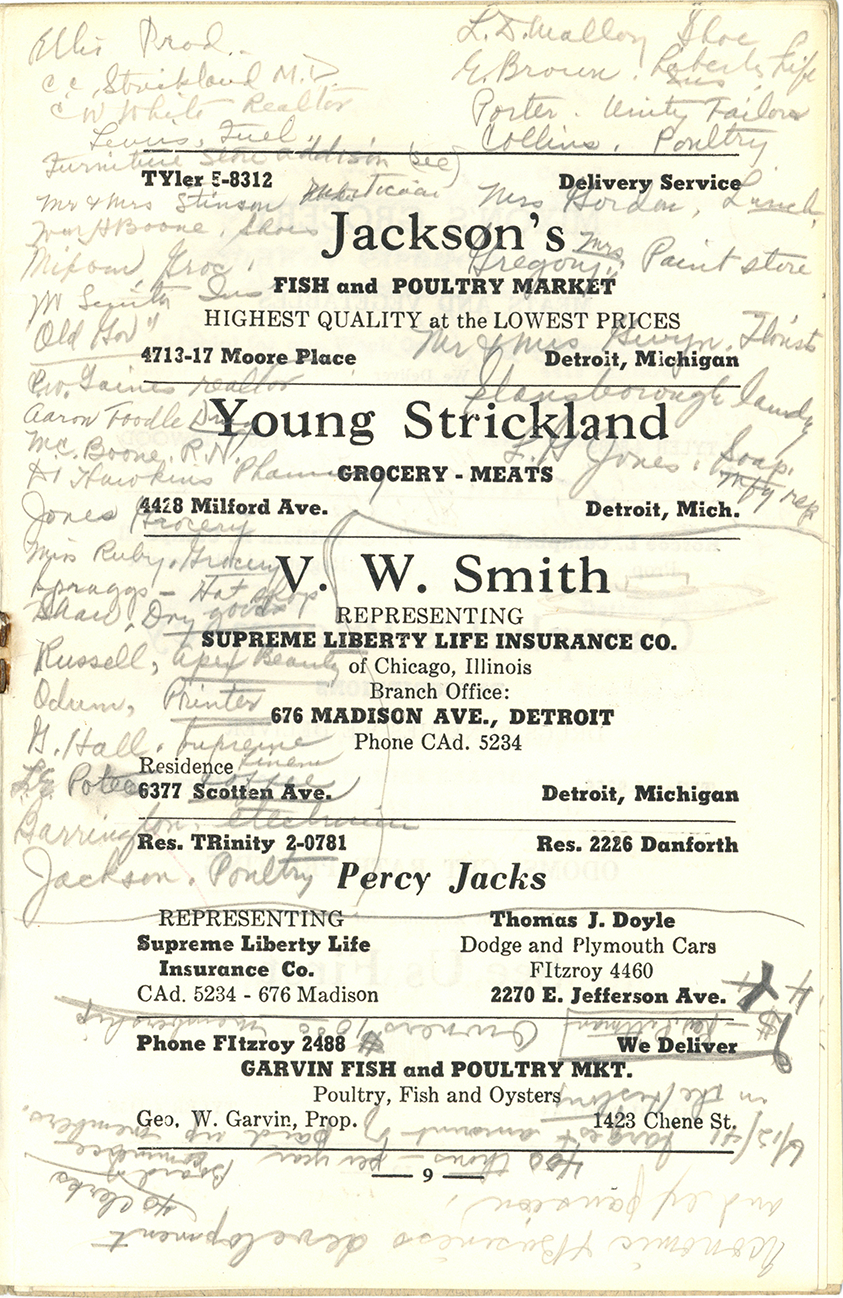 Ellis Prod.
C.C. Strickland M.D.
C W White Realtor
Lewis, Fuel
Furniture Store Addison (see)
Mr & Mrs Stinson
Wm H Boone, Shoes
Groc.
Smith Ins
"Old Gov"
Gaines realtor
Aaron Toodle Drug
Mc. Boone, R.N.
Hawkins
Jones Grocery
Miss Ruby, Grocery
Spraggs - Hat shop
Shaw, Dry goods
Russell, Apex Beauty
Odum, Printer
G. Hall, Supreme
Linen
Potee Coffee
Barrington,
Jackson, Poultry
L. D. Mallory Shoe
G. Brown, Liberty Life
Ins
Porter. Unity Tailors
Collins, Poultry
Mrs Gordon, Lunch
Mrs
Gregory, Paint store
Mr & Mrs Florists
Landy
Jones. Soap.
Mfg rep
TYler 5-8312
Delivery Service
Jackson's
FISH and POULTRY MARKET
HIGHEST QUALITY at the LOWEST PRICES
4713-17 Moore Place
Detroit, Michigan
Young Strickland
GROCERY - MEATS
4428 Milford Ave.
Detroit, Mich.
V. W. Smith
REPRESENTING
SUPREME LIBERTY LIFE INSURANCE CO.
of Chicago, Illinois
Branch Office:
676 MADISON AVE., DETROIT
Phone CAd. 5234
Residence
6377 Scotten Ave.
Detroit, Michigan
Res. TRinity 2-0781
Res. 2226 Danforth
Percy Jacks
REPRESENTING
Supreme Liberty Life
Insurance Co.
CAd. 5234 - 676 Madison
Thomas J. Doyle
Dodge and Plymouth Cars
FItzroy 4460
2270 E. Jefferson Ave.
Phone FItzroy 2488
We Deliver
GARVIN FISH and POULTRY MKT.
Poultry, Fish and Oysters
Geo. W. Garvin, Prop.
1423 Chene St.
9
Economic & Business development
and expansion
40 clerks
400 thous - per year
Board of commerce
6/12/41 largest amount of paid up members.
in the history
Rev. Pittman - Owners 10.00 membership